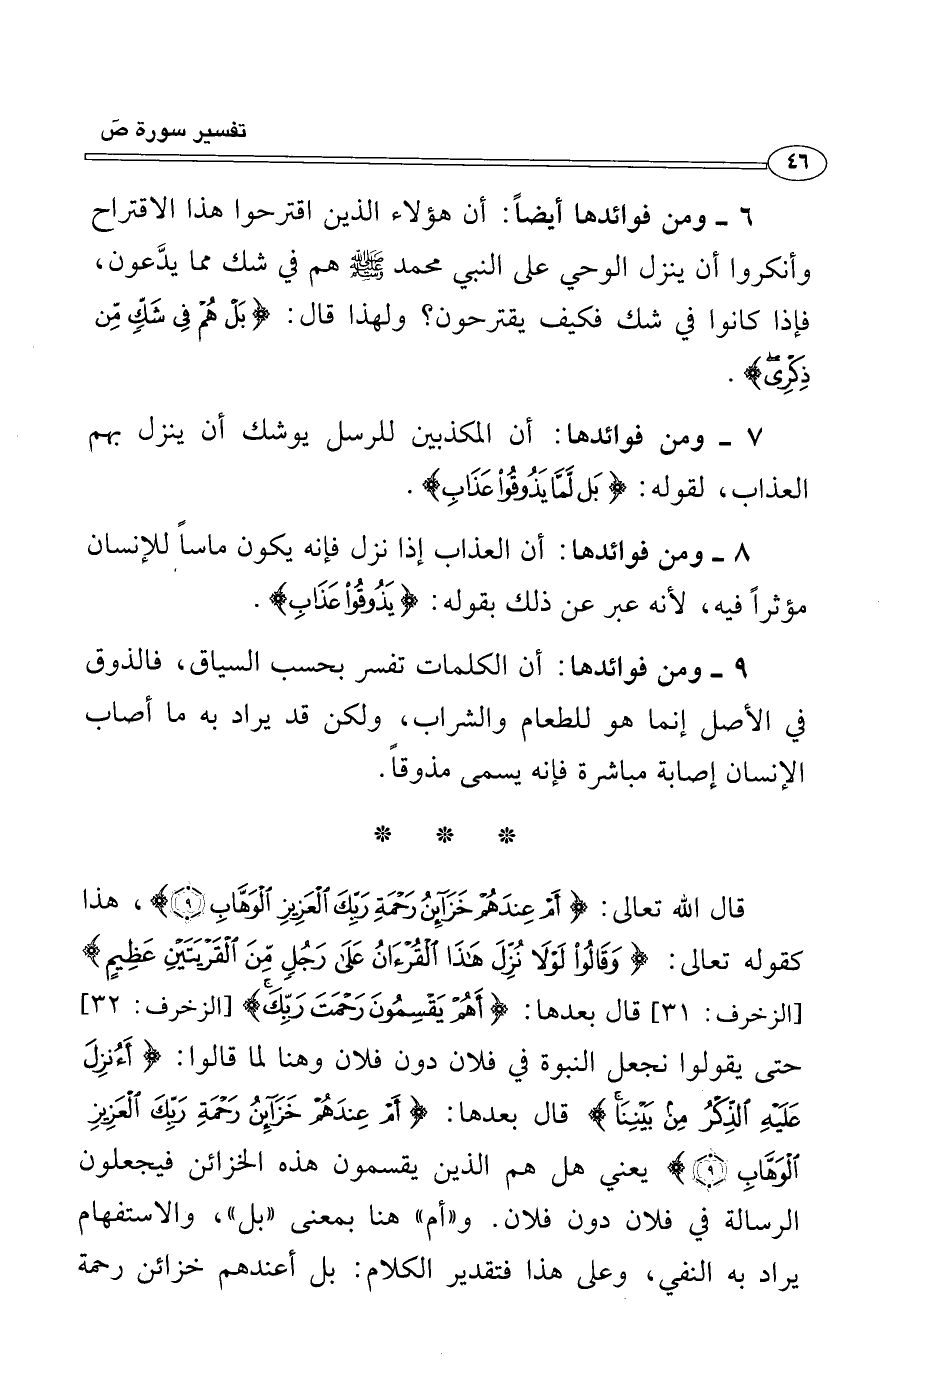 تفسير سورة صَ
٤٦
٦ ـ ومن فوائدها أيضاً: أن هؤلاء الذين اقترحوا هذا الاقتراح
وأنكروا أن ينزل الوحي على النبي محمد ﷺ هم في شك مما يدَّعون،
فإذا كانوا في شك فكيف يقترحون؟ ولهذا قال: ﴿بَلْ هُمْ فِى شَكٍّ مِّن
ذِكْرِىۖ﴾ .
٧ ـ ومن فوائدها: أن المكذبين للرسل يوشك أن ينزل بهم
العذاب، لقوله: ﴿بَل لَّمَّا يَذُوقُوا۟ عَذَابِ﴾ .
٨ ـ ومن فوائدها: أن العذاب إذا نزل فإنه يكون ماساً للإنسان
مؤثراً فيه، لأنه عبر عن ذلك بقوله: ﴿يَذُوقُوا۟ عَذَابِ﴾ .
٩ ـ ومن فوائدها: أن الكلمات تفسر بحسب السياق، فالذوق
في الأصل إنما هو للطعام والشراب، ولكن قد يراد به ما أصاب
الإنسان إصابة مباشرة فإنه يسمى مذوقاً.
* * *
قال الله تعالى: ﴿أَمْ عِندَهُمْ خَزَآئِنُ رَحْمَةِ رَبِّكَ ٱلْعَزِيزِ ٱلْوَهَّابِ ٩﴾ ، هذا
كقوله تعالى: ﴿وَقَالُوا۟ لَوْلَا نُزِّلَ هَٰذَا ٱلْقُرْءَانُ عَلَىٰ رَجُلٍ مِّنَ ٱلْقَرْيَتَيْنِ عَظِيمٍ﴾
[الزخرف: ٣١] قال بعدها: ﴿أَهُمْ يَقْسِمُونَ رَحْمَتَ رَبِّكَۚ﴾ [الزخرف: ٣٢]
حتى يقولوا نجعل النبوة في فلان دون فلان وهنا لما قالوا: ﴿أَءُنزِلَ
عَلَيْهِ ٱلذِّكْرُ مِنۢ بَيْنِنَاۚ﴾ قال بعدها: ﴿أَمْ عِندَهُمْ خَزَآئِنُ رَحْمَةِ رَبِّكَ ٱلْعَزِيزِ
ٱلْوَهَّابِ ٩﴾ يعني هل هم الذين يقسمون هذه الخزائن فيجعلون
الرسالة في فلان دون فلان. و«أم» هنا بمعنى «بل»، والاستفهام
يراد به النفي، وعلى هذا فتقدير الكلام: بل أعندهم خزائن رحمة